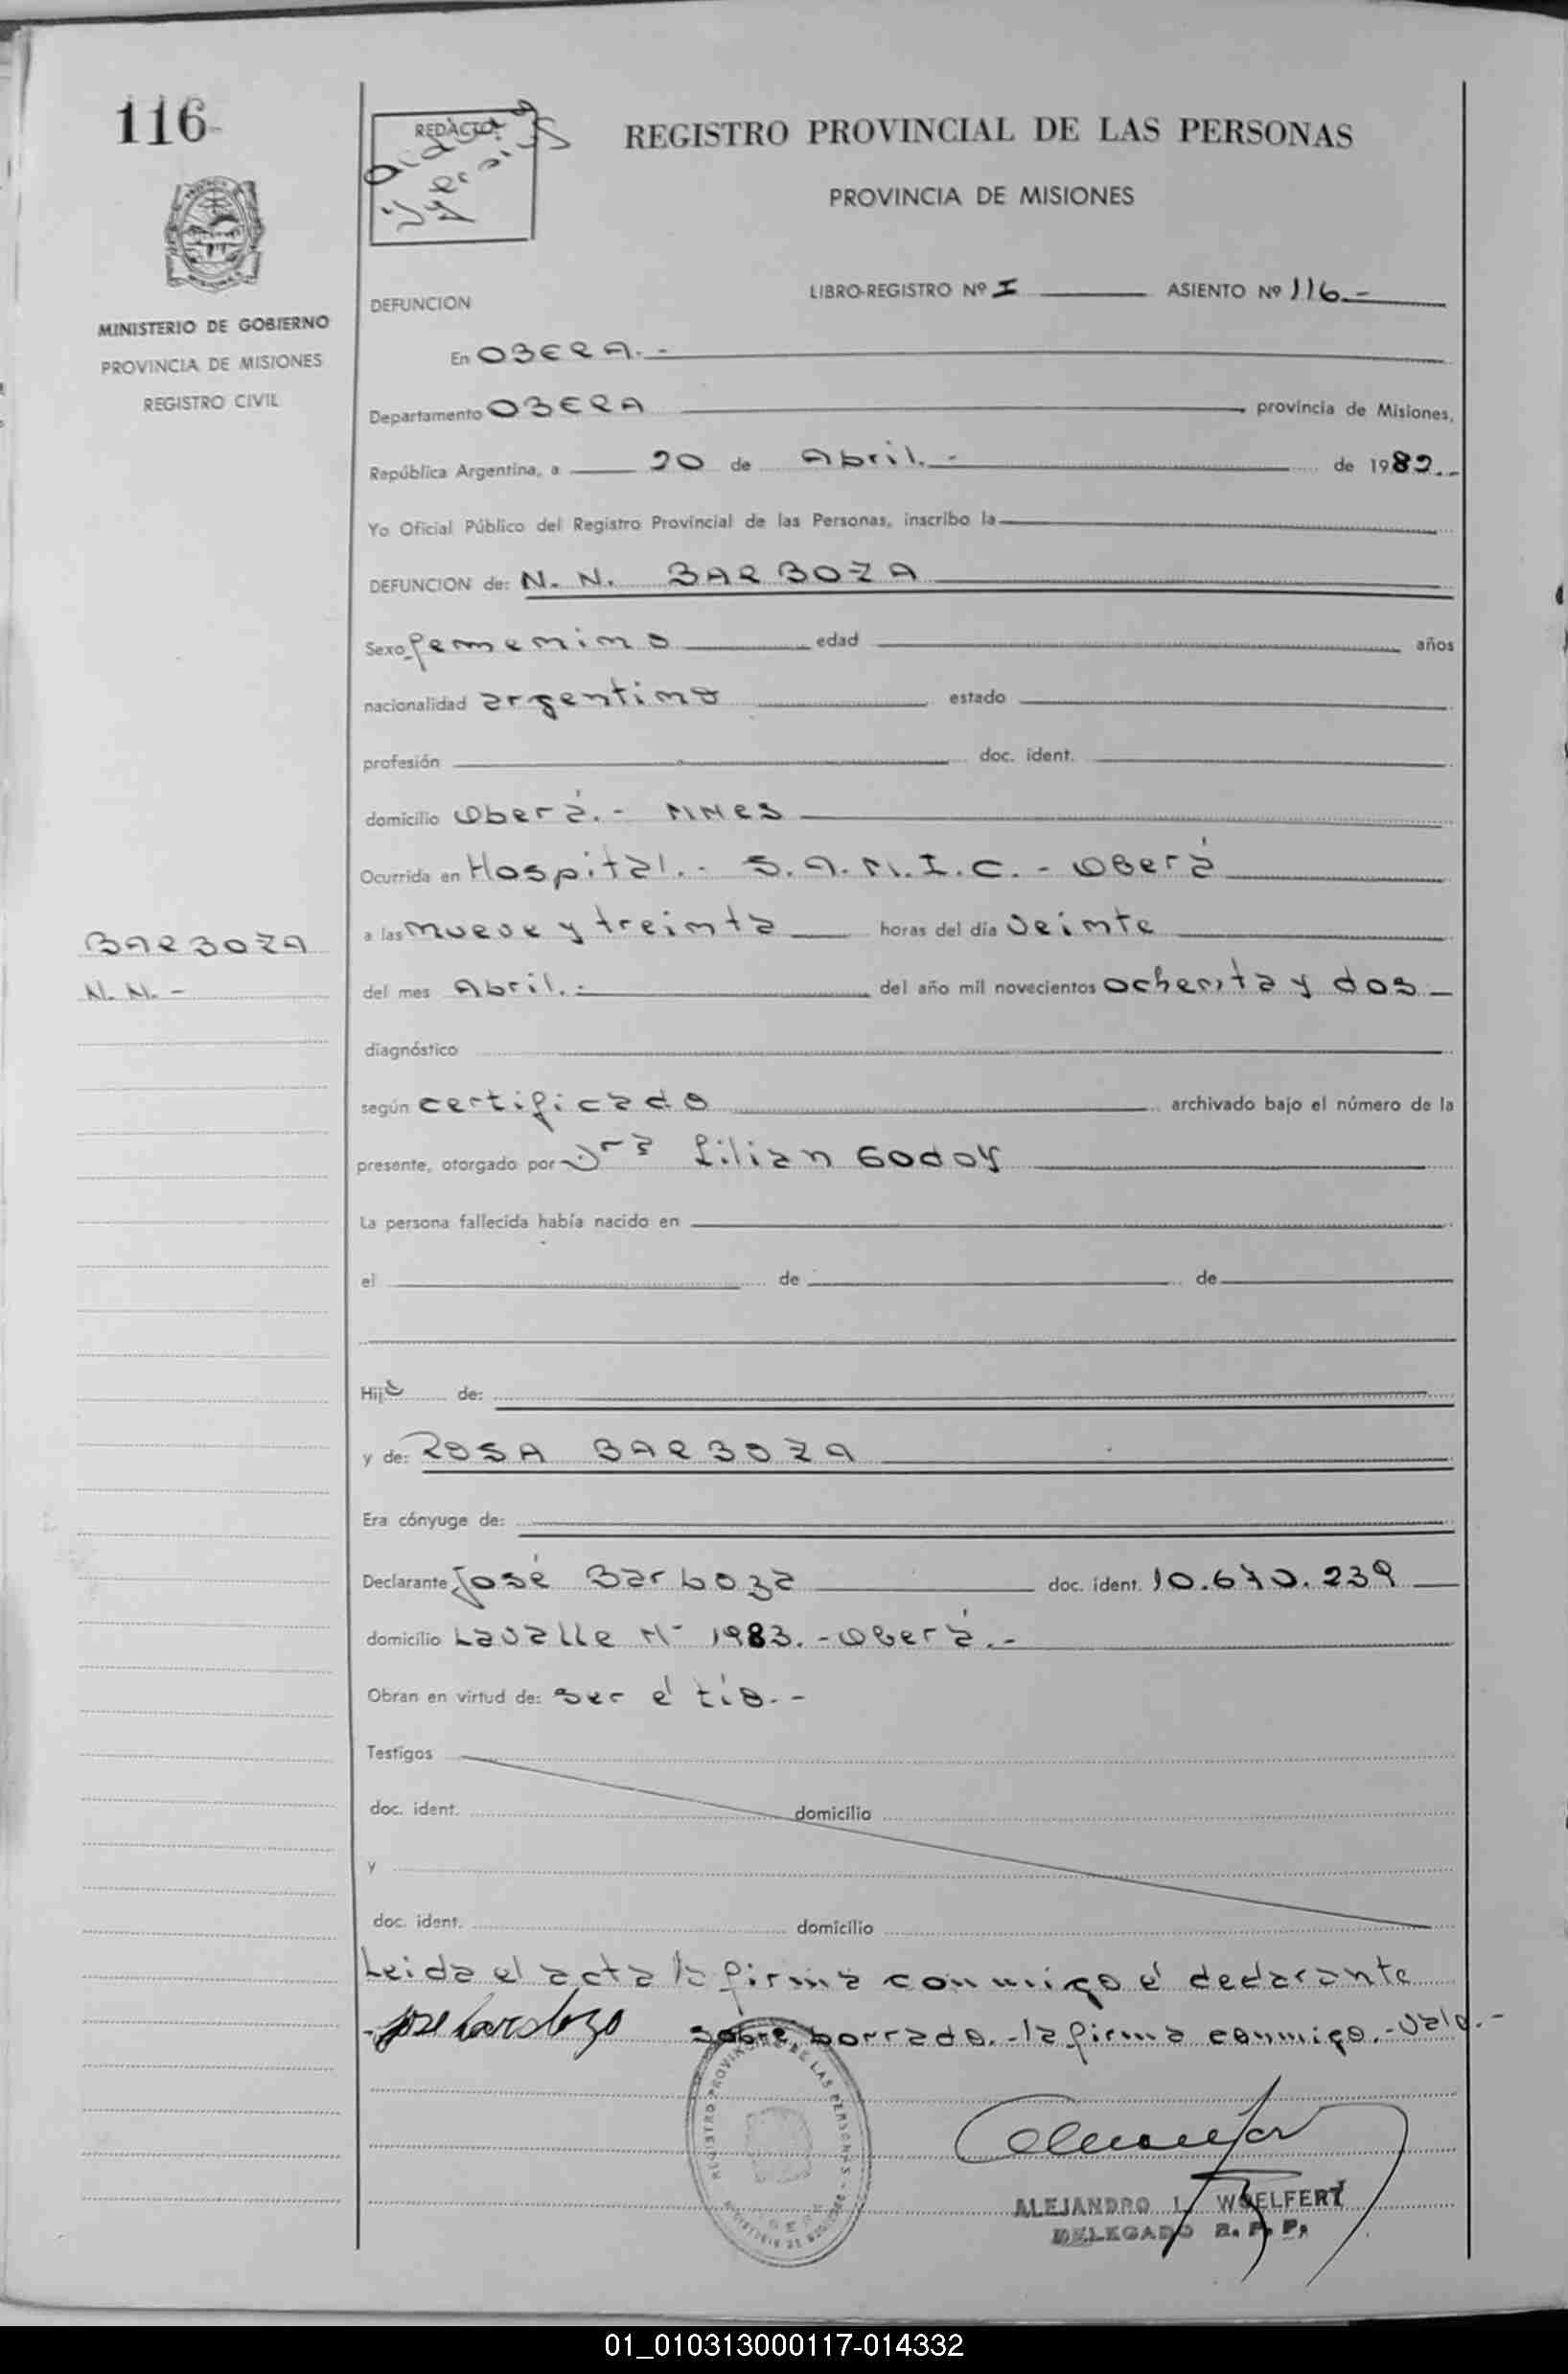 116
REDACTO:
REGISTRO PROVINCIAL DE LAS PERSONAS
PROVINCIA DE MISIONES
MINISTERIO DE GOBIERNO
PROVINCIA DE MISIONES
REGISTRO CIVIL
DEFUNCION LIBRO-REGISTRO Nº I ASIENTO Nº 116.-
En OBERA.-
Departamento OBERA provincia de Misiones,
República Argentina, a 20 de Abril.- de 1982.-
Yo Oficial Público del Registro Provincial de las Personas, inscribo la
DEFUNCION de: N. N. BARBOZA
Sexo femenino edad años
nacionalidad argentina estado
profesión doc. ident.
domicilio Oberá.- MNES
Ocurrida en Hospital.- S.A.M.I.C.- Oberá
BARBOZA
N. N.-
a las nueve y treinta horas del día veinte
del mes Abril.- del año mil novecientos ochenta y dos-
diagnóstico
según certificado archivado bajo el número de la
presente, otorgado por Dra Lilian Godoy
La persona fallecida había nacido en
el de de
Hija de:
y de: ROSA BARBOZA
Era cónyuge de:
Declarante José Barboza doc. ident. 10.670.239
domicilio Lavalle Nº 1983.-Oberá.-
Obran en virtud de: ser el tío.-
Testigos
doc. ident. domicilio
y
doc. ident. domicilio
Leida el acta la firma conmigo el declarante
sobre borrado.-la firma conmigo.-Vale.-
REGISTRO PROVINCIAL DE LAS PERSONAS
ALEJANDRO L. WOELFERT
DELEGADO R. P. P.
01_010313000117-014332